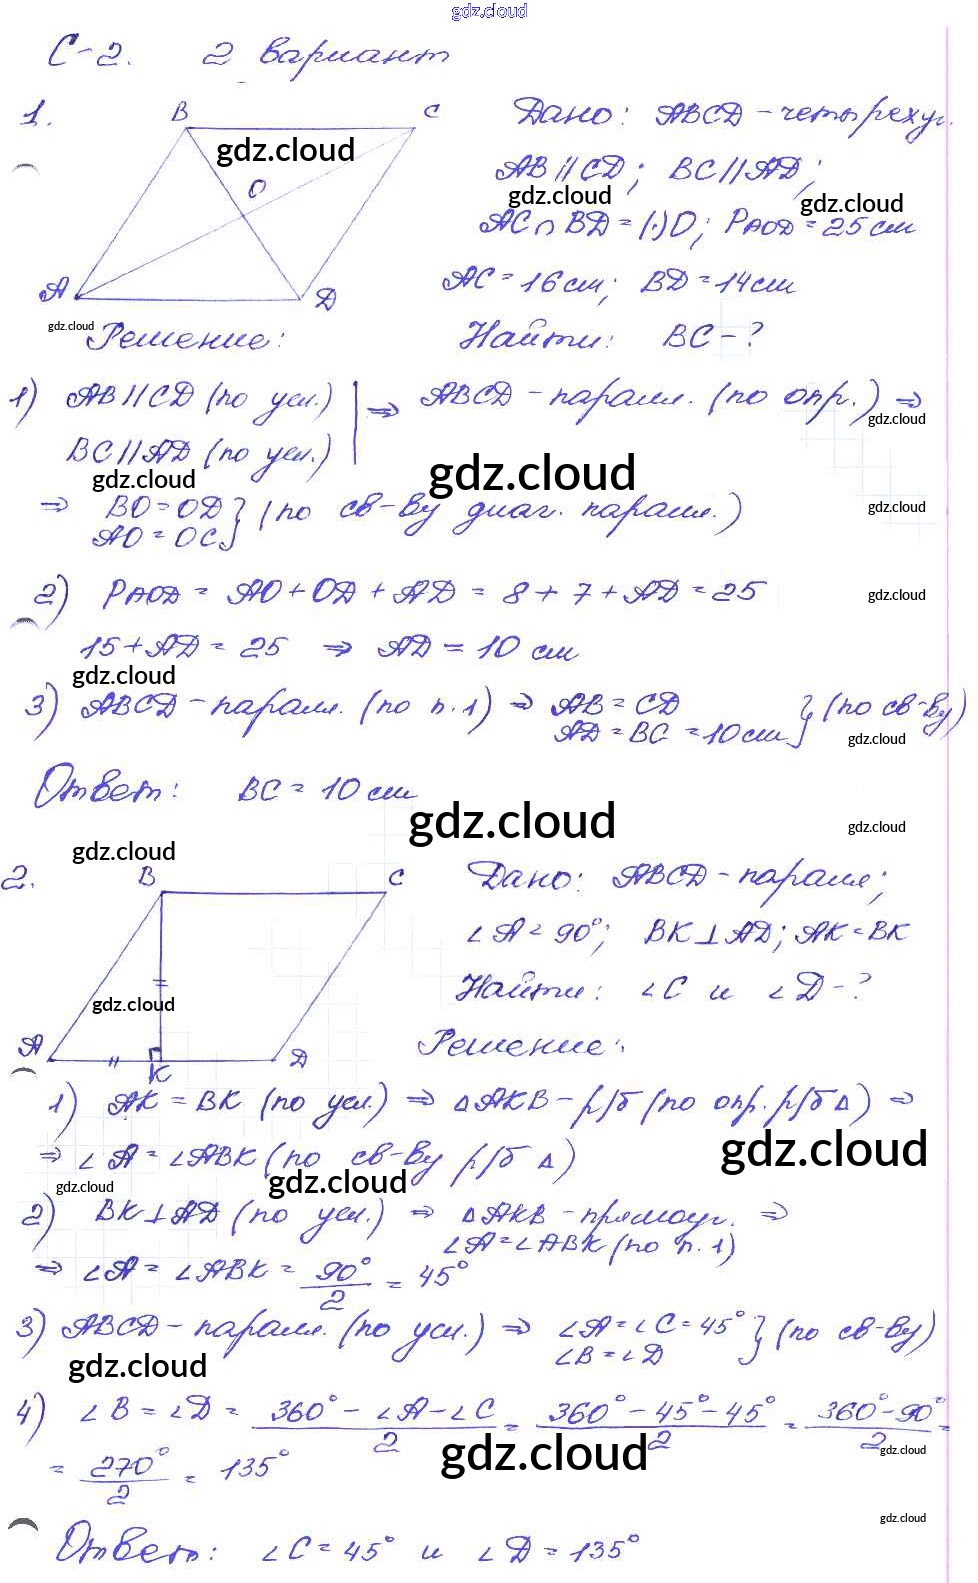 gdz.cloud
С-2. 2 вариант
1. B C Дано: ABCD - четырехуг.
gdz.cloud
O AB || CD; BC || AD;
gdz.cloud gdz.cloud
AC ∩ BD = (·) O; PAOD = 25 см
A D AC = 16 см; BD = 14 см
gdz.cloud
Решение: Найти: BC - ?
1) AB || CD (по усл.) | ⇒ ABCD - паралл. (по опр.) ⇒
gdz.cloud
BC || AD (по усл.)
gdz.cloud gdz.cloud
⇒ BO = OD } (по св-ву диаг. паралл.)
gdz.cloud
AO = OC
2) PAOD = AO + OD + AD = 8 + 7 + AD = 25
gdz.cloud
15 + AD = 25 ⇒ AD = 10 см
gdz.cloud
3) ABCD - паралл. (по п.1) ⇒ AB = CD } (по св-ву)
AD = BC = 10 см
gdz.cloud
Ответ: BC = 10 см
gdz.cloud gdz.cloud
gdz.cloud
2. B C Дано: ABCD - паралл;
∠A = 90°; BK ⊥ AD; AK = BK
Найти: ∠C и ∠D - ?
gdz.cloud
A K D Решение:
1) AK = BK (по усл.) ⇒ △AKB - р/б (по опр. р/б △) ⇒
gdz.cloud
⇒ ∠A = ∠ABK (по св-ву р/б △)
gdz.cloud gdz.cloud
2) BK ⊥ AD (по усл.) ⇒ △AKB - прямоуг. ⇒
∠A = ∠ABK (по п.1)
⇒ ∠A = ∠ABK = 90°/2 = 45°
3) ABCD - паралл. (по усл.) ⇒ ∠A = ∠C = 45° } (по св-ву)
∠B = ∠D
gdz.cloud
4) ∠B = ∠D = (360° - ∠A - ∠C)/2 = (360° - 45° - 45°)/2 = (360° - 90°)/2 =
gdz.cloud gdz.cloud
= 270°/2 = 135°
gdz.cloud
Ответ: ∠C = 45° и ∠D = 135°